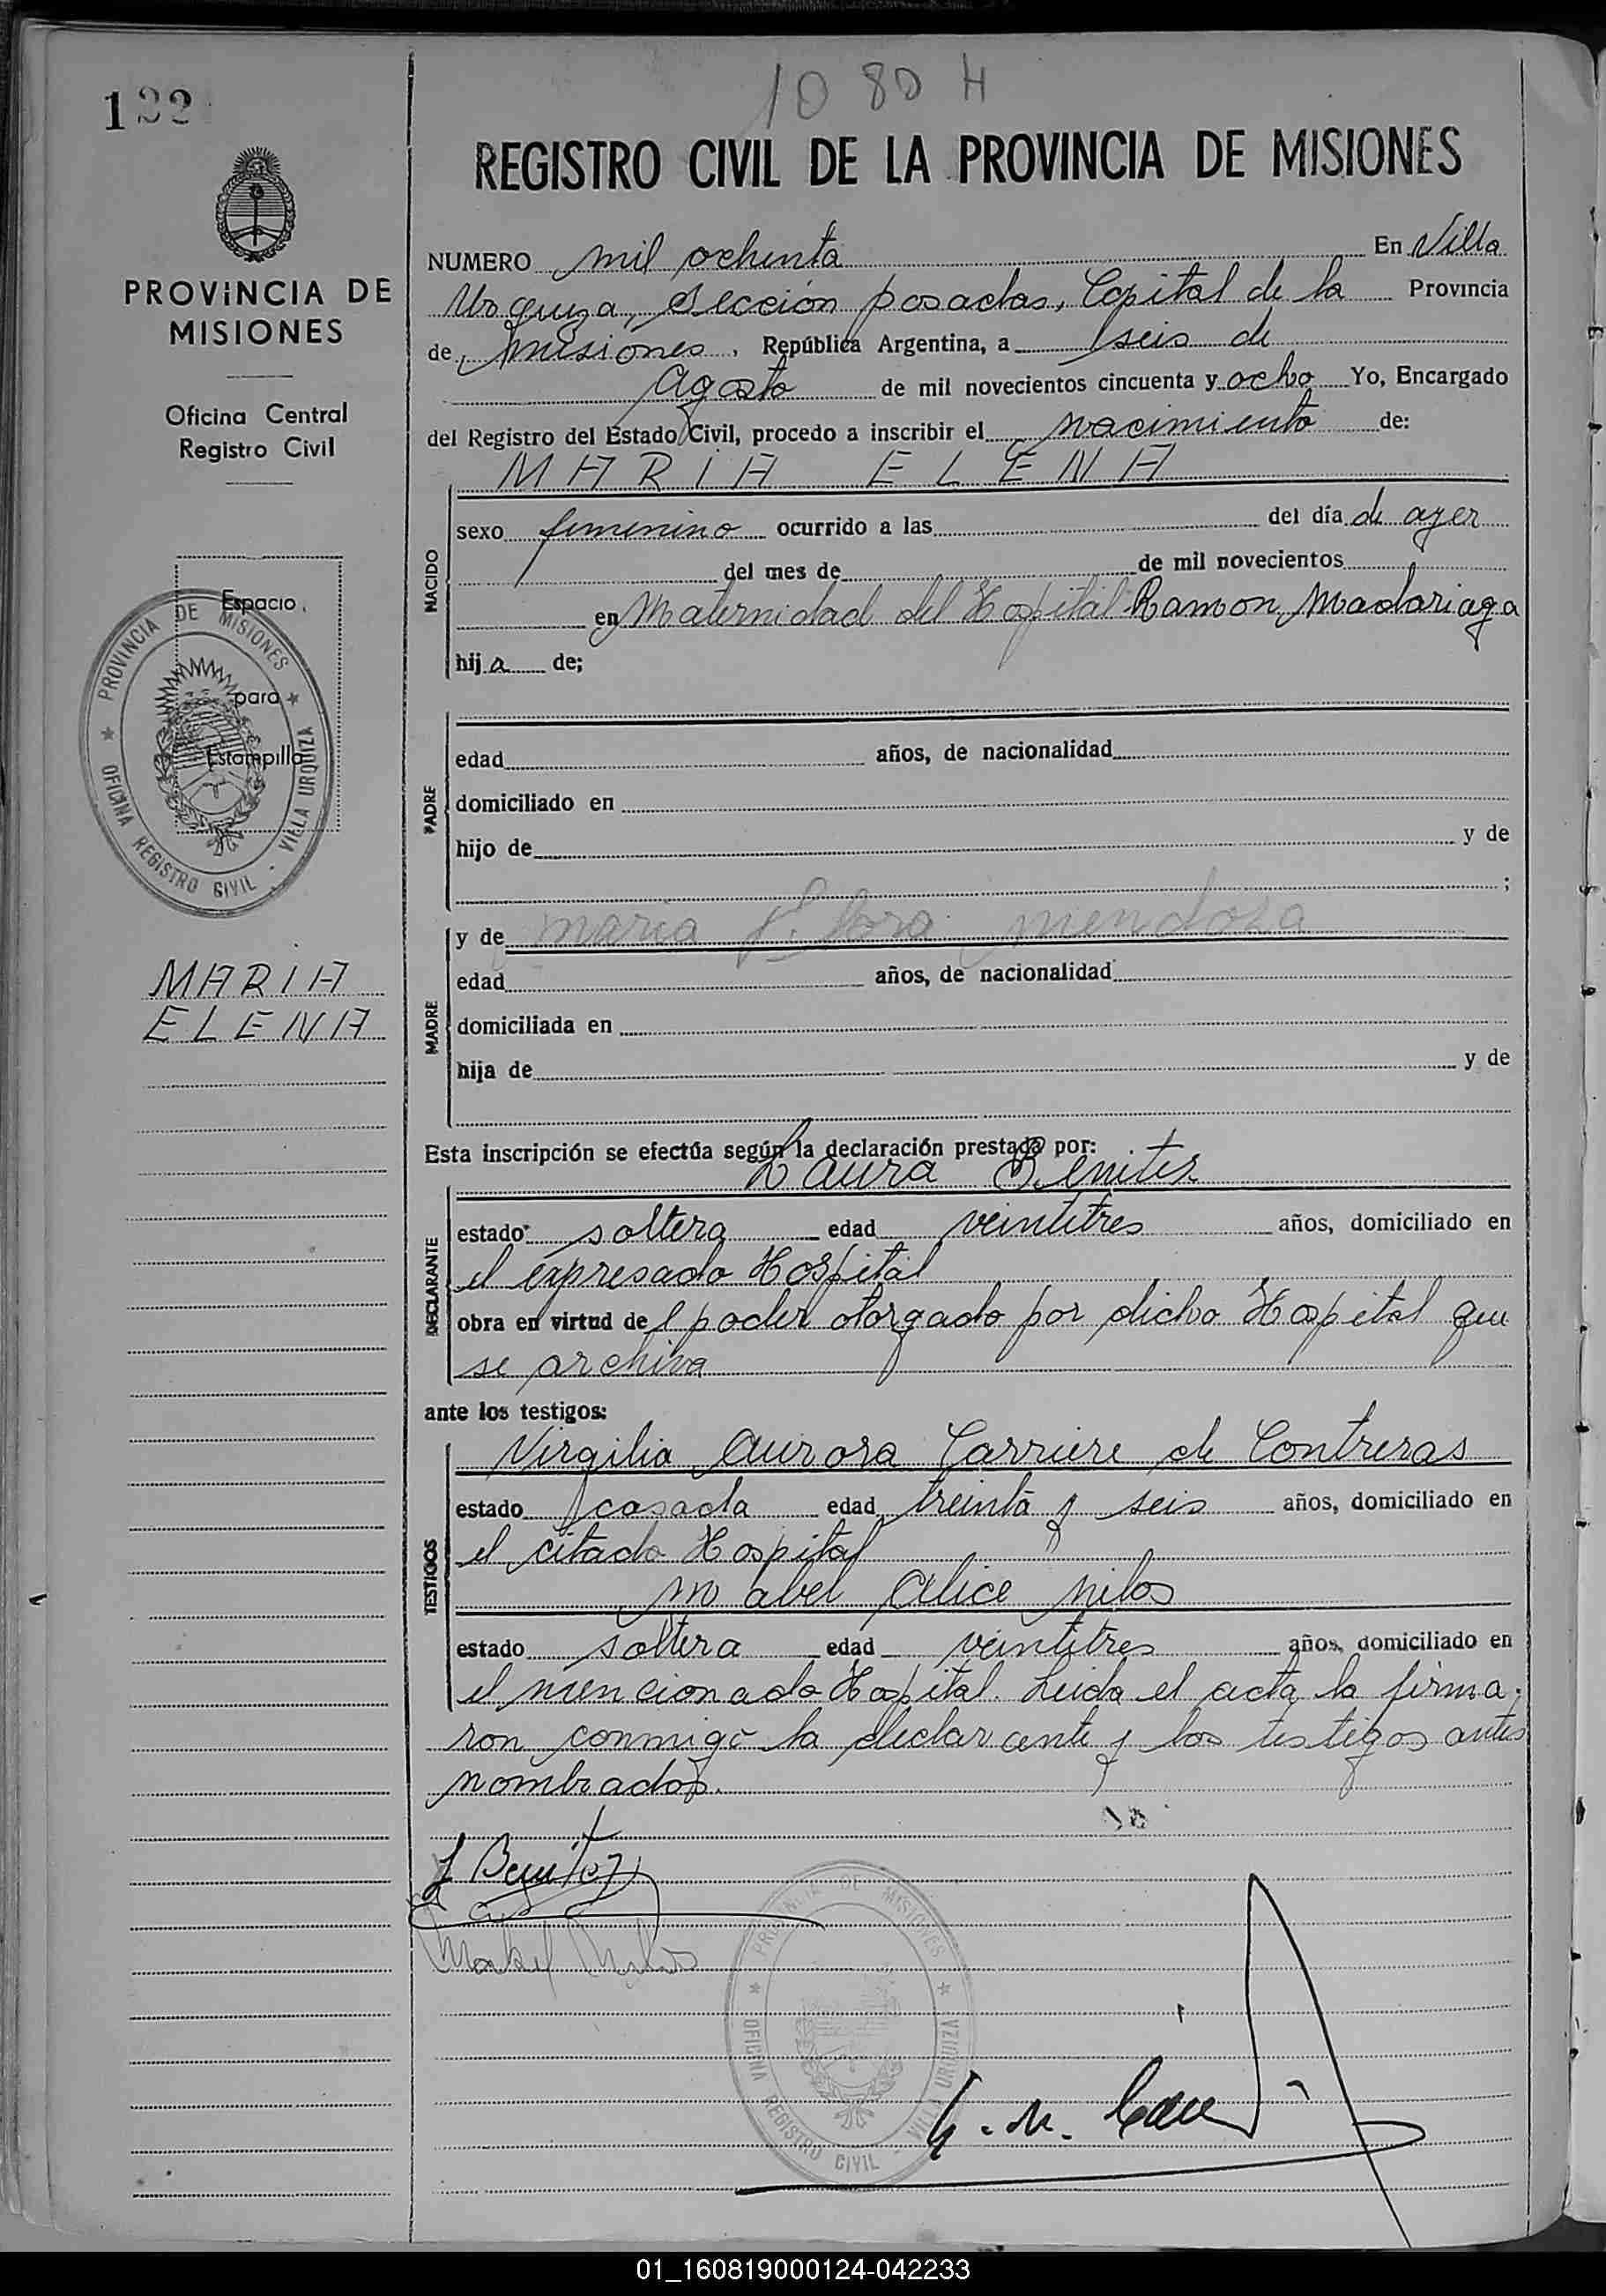 122
10 80 H
PROVINCIA DE
MISIONES
Oficina Central
Registro Civil
Espacio
para
Estampilla
PROVINCIA DE MISIONES
OFICINA REGISTRO CIVIL - VILLA URQUIZA
MARIA
ELENA
REGISTRO CIVIL DE LA PROVINCIA DE MISIONES
NUMERO mil ochenta En Villa
Urquiza, Sección posadas, Capital de la Provincia
de misiones, República Argentina, a seis de
Agosto de mil novecientos cincuenta y ocho Yo, Encargado
del Registro del Estado Civil, procedo a inscribir el nacimiento de:
MARIA ELENA
NACIDO
sexo femenino ocurrido a las del día de ayer
del mes de de mil novecientos
en Maternidad del Hospital Ramon Madariaga
hija de;
PADRE
edad años, de nacionalidad
domiciliado en
hijo de y de
;
MADRE
y de maria Flora mendoza
edad años, de nacionalidad
domiciliada en
hija de y de
Esta inscripción se efectúa según la declaración prestada por:
Laura Benitez
DECLARANTE
estado soltera edad veintitres años, domiciliado en
el expresado Hospital
obra en virtud de l poder otorgado por dicho Hospital que
se archiva
ante los testigos:
TESTIGOS
Virgilia Aurora Carriere de Contreras
estado casada edad treinta y seis años, domiciliado en
el citado Hospital
mabel Alice nilos
estado soltera edad veintitres años, domiciliado en
el mencionado Hospital. Leida el acta la firma.
ron conmigo la declarante y los testigos antes
nombrados.
L Benitez
Mabel Nilos
PROVINCIA DE MISIONES
OFICINA REGISTRO CIVIL - VILLA URQUIZA
01_160819000124-042233